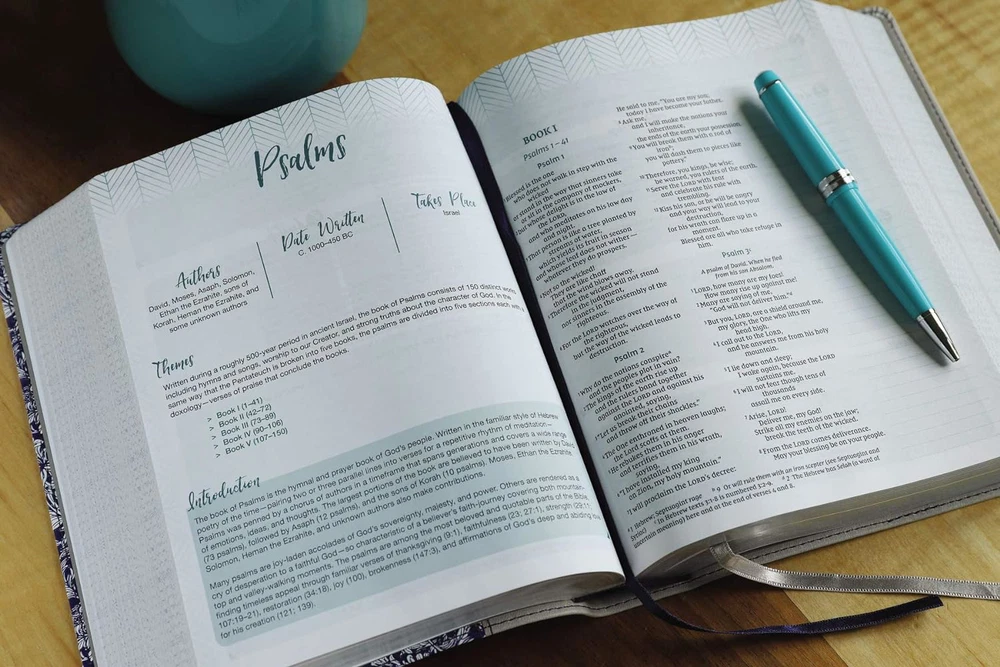 Psalms
Authors
David, Moses, Asaph, Solomon,
Ethan the Ezrahite, sons of
Korah, Heman the Ezrahite, and
some unknown author
Date Written
C. 1000–450 BC
Takes Place
Israel
Themes
Written during a roughly 500-year period in ancient Israel, the book of Psalms consists of 150 distinct works
including hymns and songs, worship to our Creator, and strong truths about the character of God. In the
same way that the Pentateuch is broken into five books, the psalms are divided into five sections each with a
doxology—verses of praise that conclude the books.
> Book I (1–41)
> Book II (42–72)
> Book III (73–89)
> Book IV (90–106)
> Book V (107–150)
Introduction
The book of Psalms is the hymnal and prayer book of God's people. Written in the familiar style of Hebrew
poetry of the time—pairing two or three parallel lines into verses for a repetitive rhythm of meditation—
Psalms was penned by a chorus of authors in a timeframe that spans generations and covers a wide range
of emotions, ideas, and thoughts. The largest portions of the book are believed to have been written by David
(73 psalms), followed by Asaph (12 psalms), and the sons of Korah (10 psalms). Moses, Ethan the Ezrahite,
Solomon, Heman the Ezrahite, and unknown authors also make contributions.
Many psalms are joy-laden accolades of God's sovereignty, majesty, and power. Others are rendered as a
cry of desperation to a faithful God—so characteristic of a believer's faith-journey covering both mountain-
top and valley-walking moments. The psalms are among the most beloved and quotable parts of the Bible,
finding timeless appeal through familiar verses of thanksgiving (9:1), faithfulness (23; 27:1), strength (29:11;
107:19–21), restoration (34:18), joy (100), brokenness (147:3), and affirmations of God's deep and abiding love
for his creation (121; 139).
BOOK I
Psalms 1–41
Psalm 1
Blessed is the one
who does not walk in step with the
wicked
or stand in the way that sinners take
or sit in the company of mockers,
but whose delight is in the law of
the LORD,
and who meditates on his law day
and night.
That person is like a tree planted by
streams of water,
which yields its fruit in season
and whose leaf does not wither—
whatever they do prospers.
Not so the wicked!
They are like chaff
that the wind blows away.
Therefore the wicked will not stand
in the judgment,
nor sinners in the assembly of the
righteous.
For the LORD watches over the way of
the righteous,
but the way of the wicked leads to
destruction.
Psalm 2
Why do the nations conspire
and the peoples plot in vain?
The kings of the earth rise up
and the rulers band together
against the LORD and against his
anointed, saying,
"Let us break their chains
and throw off their shackles."
The one enthroned in heaven laughs;
the Lord scoffs at them.
He rebukes them in his anger
and terrifies them in his wrath,
saying,
"I have installed my king
on Zion, my holy mountain."
I will proclaim the LORD's decree:
He said to me, "You are my son;
today I have become your father.
8 Ask me,
and I will make the nations your
inheritance,
the ends of the earth your possession.
9 You will break them with a rod of
iron;
you will dash them to pieces like
pottery."
10 Therefore, you kings, be wise;
be warned, you rulers of the earth.
11 Serve the LORD with fear
and celebrate his rule with
trembling.
12 Kiss his son, or he will be angry
and your way will lead to your
destruction,
for his wrath can flare up in a
moment.
Blessed are all who take refuge in
him.
Psalm 3
A psalm of David. When he fled
from his son Absalom.
1 LORD, how many are my foes!
How many rise up against me!
2 Many are saying of me,
"God will not deliver him."
3 But you, LORD, are a shield around me,
my glory, the One who lifts my
head high.
4 I call out to the LORD,
and he answers me from his holy
mountain.
5 I lie down and sleep;
I wake again, because the LORD
sustains me.
6 I will not fear though tens of
thousands
assail me on every side.
7 Arise, LORD!
Deliver me, my God!
Strike all my enemies on the jaw;
break the teeth of the wicked.
8 From the LORD comes deliverance.
May your blessing be on your people.
Hebrew; Septuagint rage
Or will rule them with an iron scepter (see Septuagint and
Syriac)
In Hebrew texts 3:1-8 is numbered 3:2-9.
2 The Hebrew has Selah (a word of
uncertain meaning) here and at the end of verses 4 and 8.